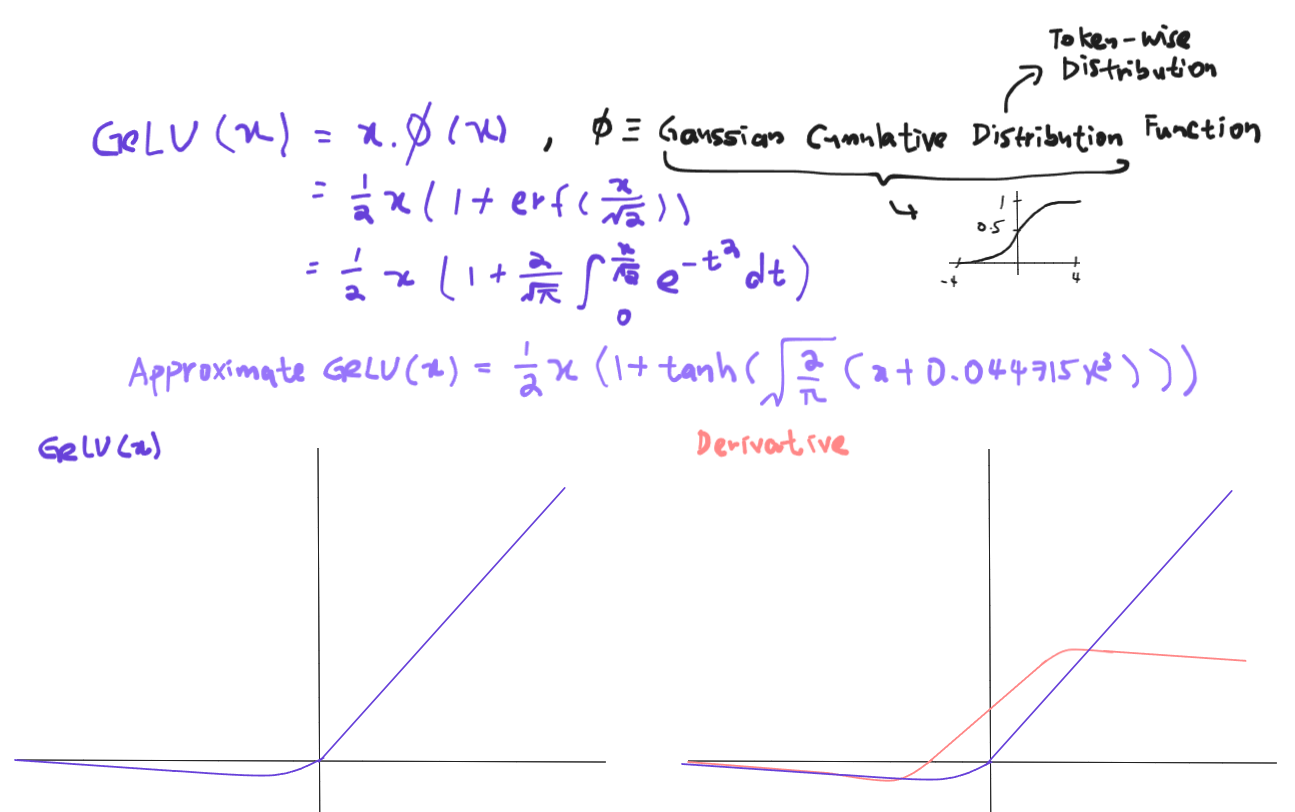 Token-wise
Distribution
GeLU(x) = x.ϕ(x) , ϕ ≡ Gaussian Cumulative Distribution Function
= 1/2 x (1 + erf(x/√2))
= 1/2 x (1 + 2/√π ∫₀^(x/√2) e^(-t²) dt)
1
0.5
-4 4
Approximate GELU(x) = 1/2 x (1 + tanh(√(2/π) (x + 0.044715x³)))
GeLU(x) Derivative